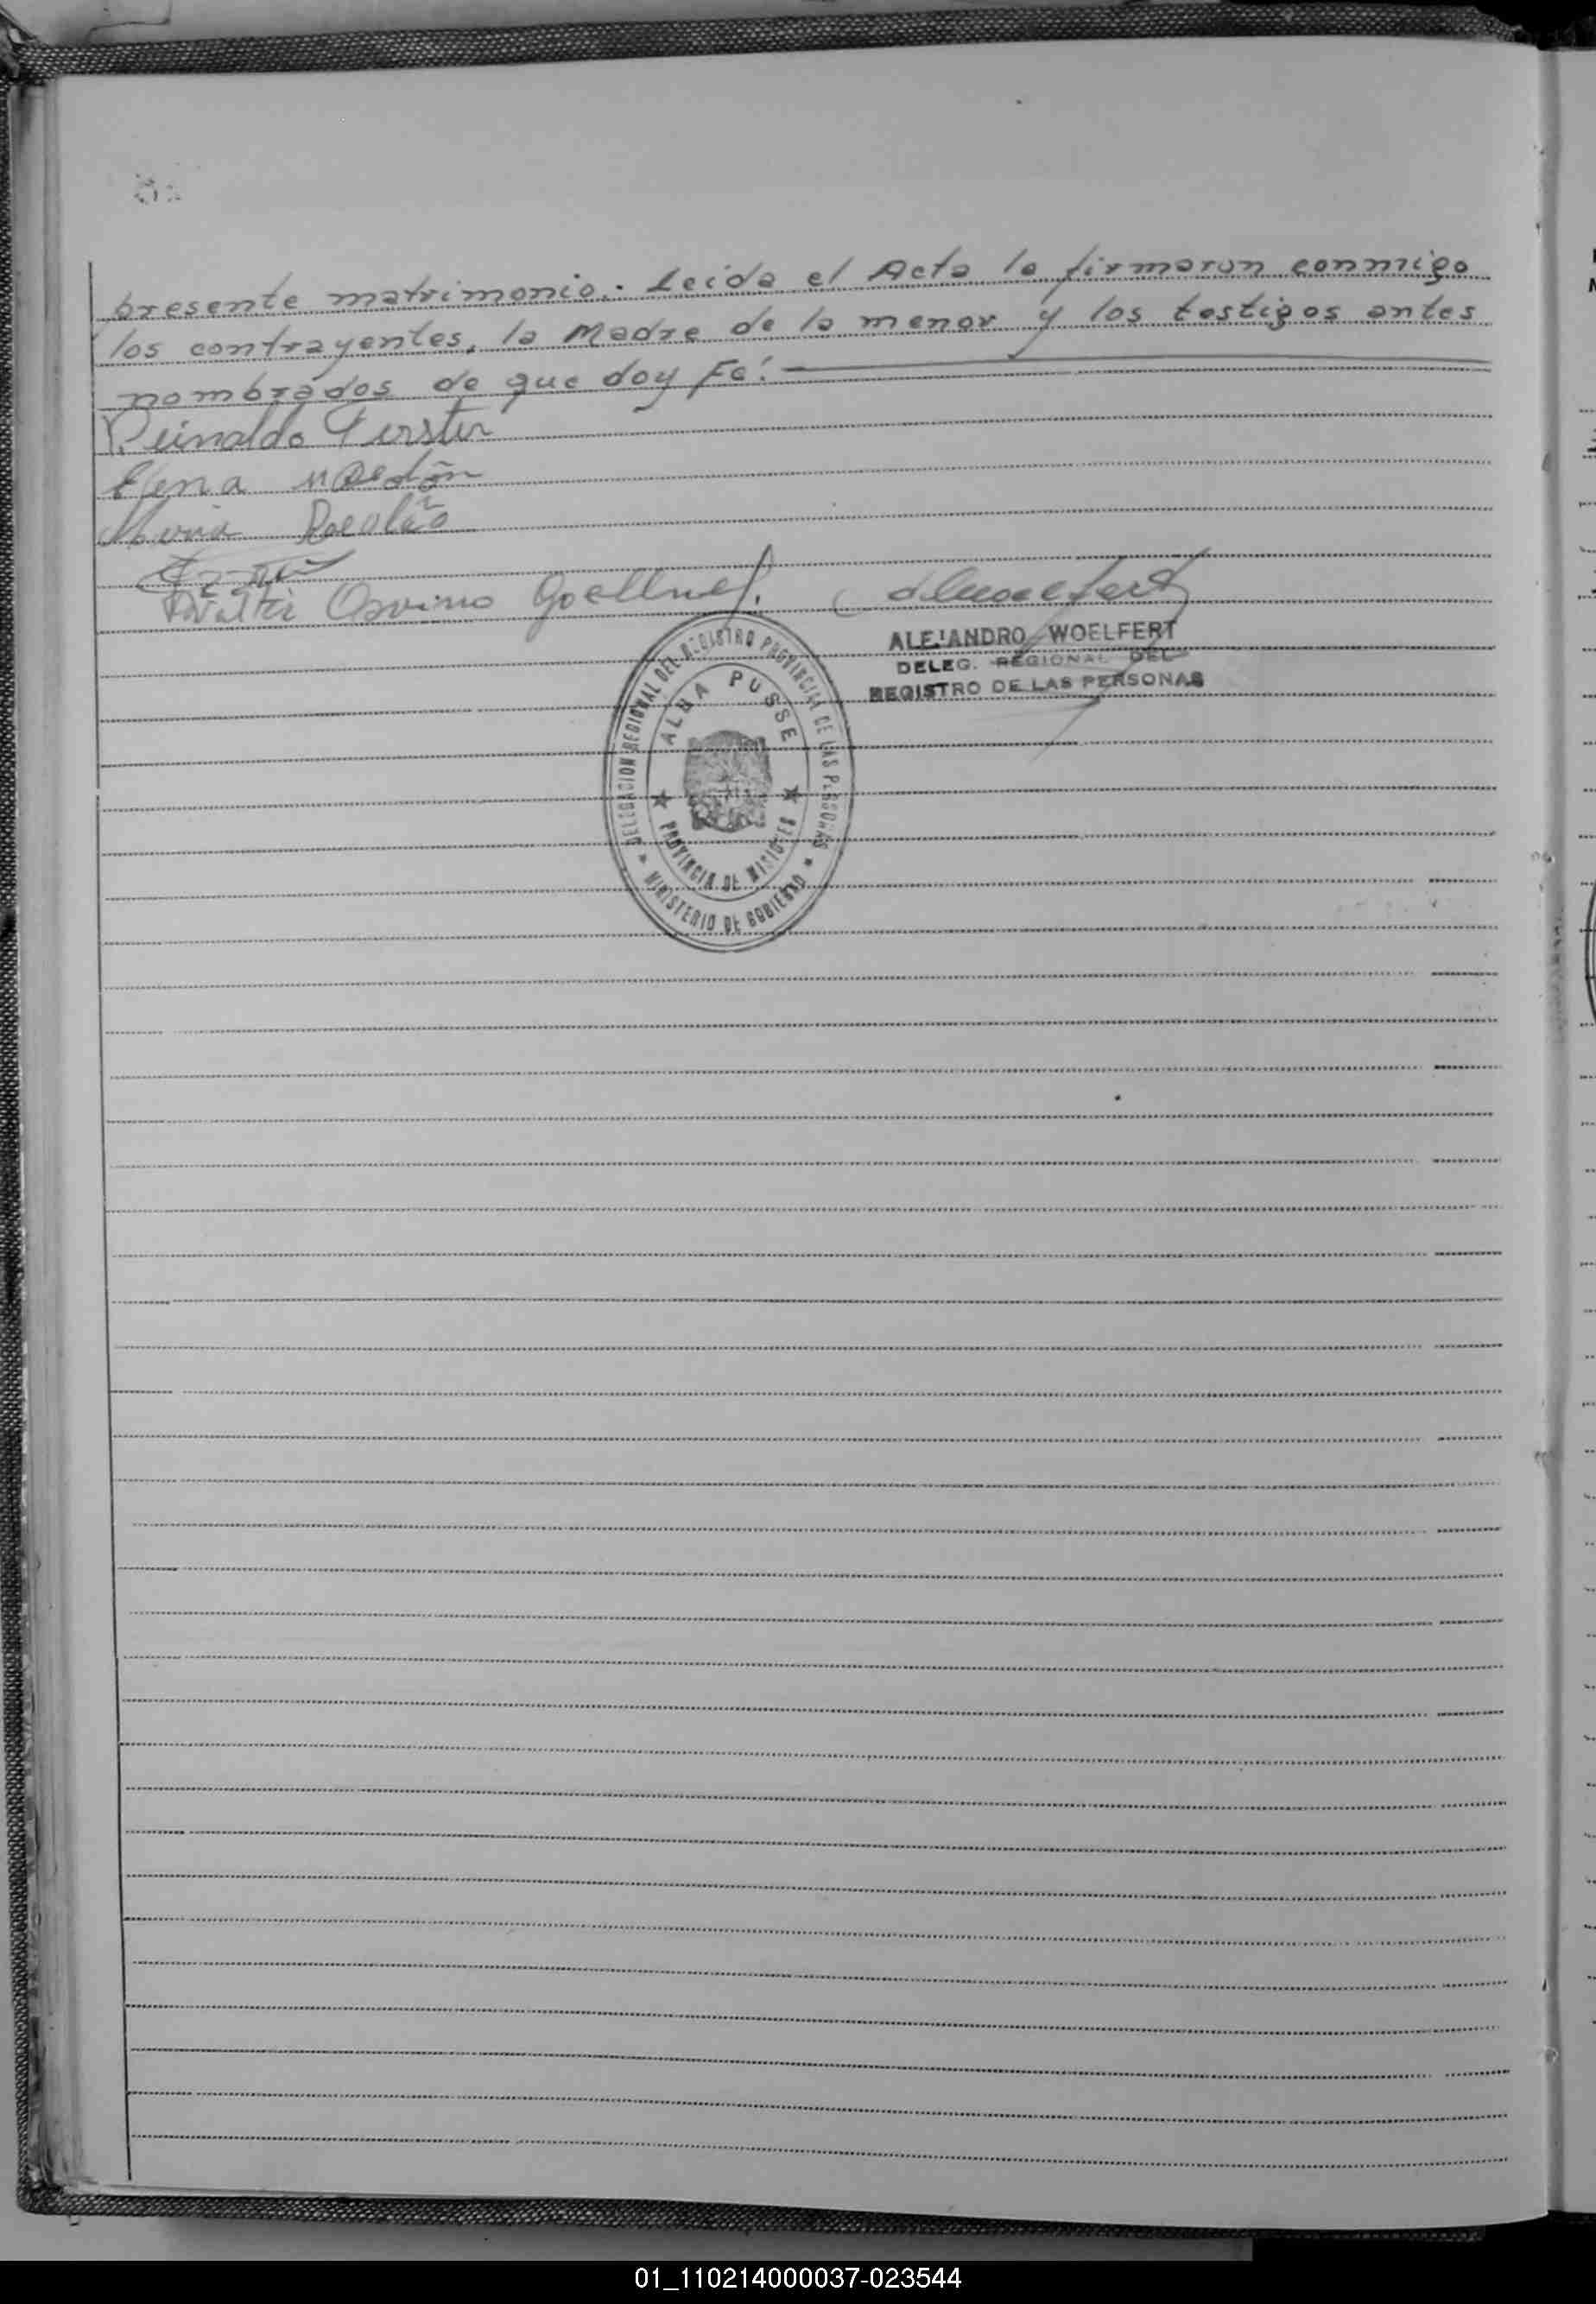 presente matrimonio. Leida el Acta la firmaron conmigo
los contrayentes, la Madre de la menor y los testigos antes
nombrados de que doy Fé:
Reinaldo Ferster
Elena
Maria
Walter Osvino Goellner
ALEJANDRO WOELFERT
DELEG. REGIONAL DEL
REGISTRO DE LAS PERSONAS
DELEGACION REGIONAL DEL REGISTRO PROVINCIAL DE LAS PERSONAS
ALBA POSSE
PROVINCIA DE MISIONES
MINISTERIO DE GOBIERNO
01_110214000037-023544